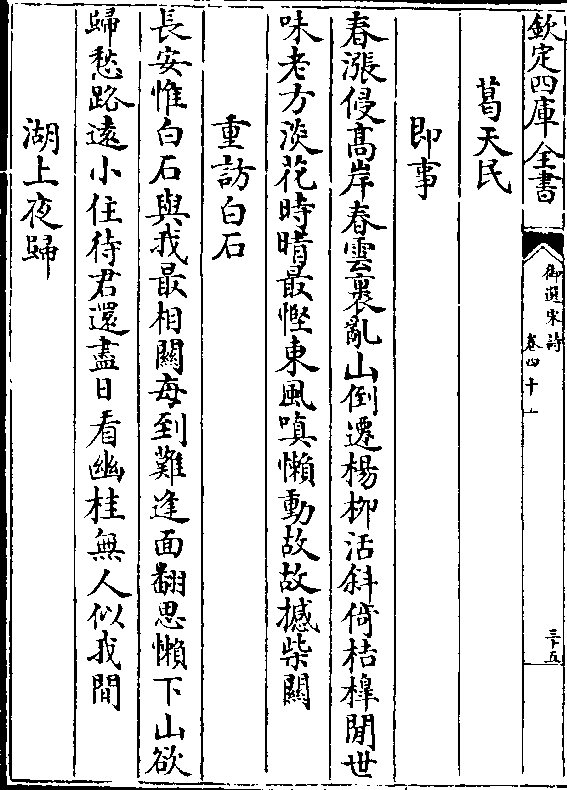 欽定四庫全書
御選宋詩
卷四十一
三十五
葛天民
即事
春漲侵髙岸春雲裹亂山倒遷楊柳活斜倚桔槹閒世
味老方淡花時晴最慳東風嗔懶動故故撼柴關
重訪白石
長安惟白石與我最相關每到難逢面翻思懶下山欲
歸愁路遠小住待君還盡日看幽桂無人似我閒
湖上夜歸